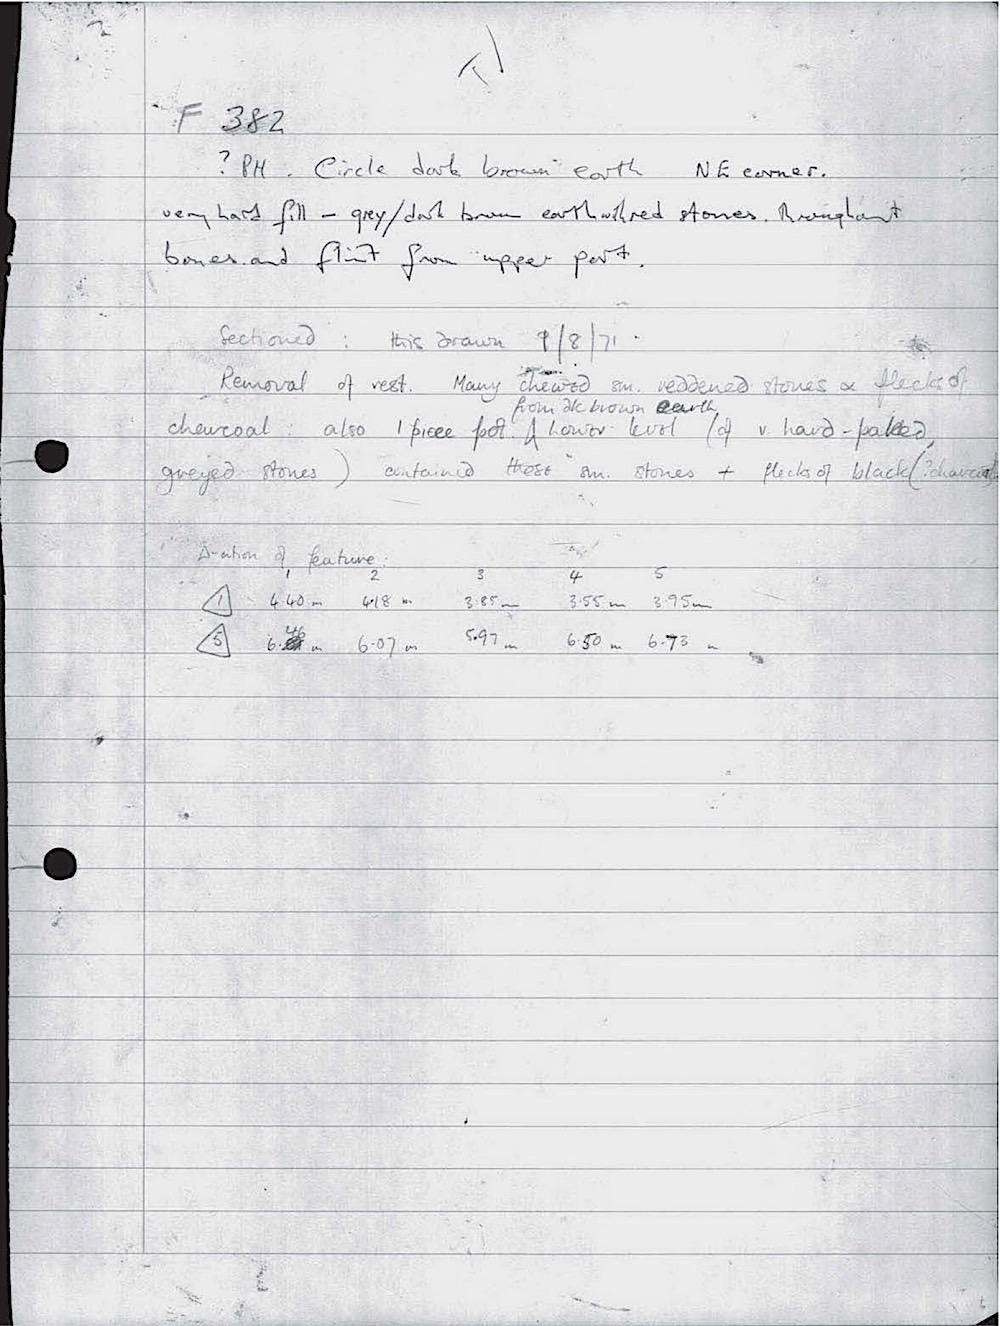 F 382
? PH. Circle dark brown earth NE corner.
very hard fill - grey/dark brown earth with red stones. Throughout
bones and flint from upper part.
Sectioned : this drawn 9/8/71.
Removal of rest. Many sm. reddened stones & flecks of
from dk brown earth
charcoal : also 1 piece pot. Lower level (of v. hard-packed,
greyed stones) contained these sm. stones + flecks of black (?charcoal
of feature:
1 2 3 4 5
1 4.40 m 4.18 m 3.85 m 3.55 m 3.95m
5 6.46 m 6.07 m 5.97 m 6.50 m 6.73 m